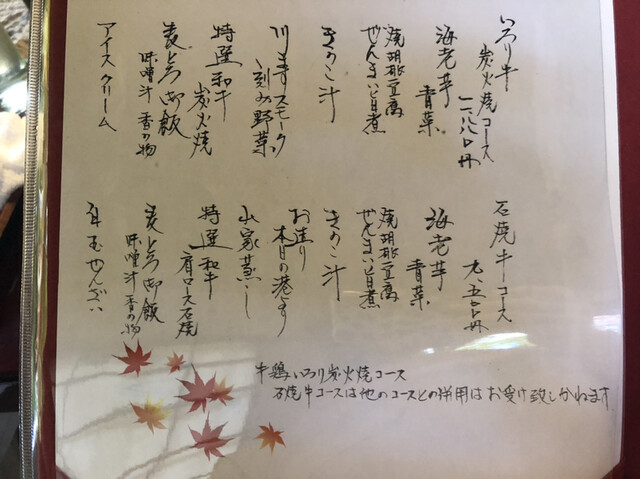 いろり牛
炭火焼コース
一一、八八〇円
海老芋 青菜
焼胡麻豆腐
ぜんまい旨煮
きのこ汁
川ますスモーク
刻み野菜
特選和牛
炭火焼
麦とろ御飯
味噌汁 香の物
アイスクリーム
石焼牛コース
九、五〇〇円
海老芋
青菜
焼胡麻豆腐
ぜんまい旨煮
きのこ汁
お造り
本日の巻ます
山家蒸し
特選和牛
肩ロース石焼
麦とろ御飯
味噌汁 香の物
白玉ぜんざい
牛鶏いろり炭火焼コース
石焼牛コースは他のコースとの併用はお受け致しかねます